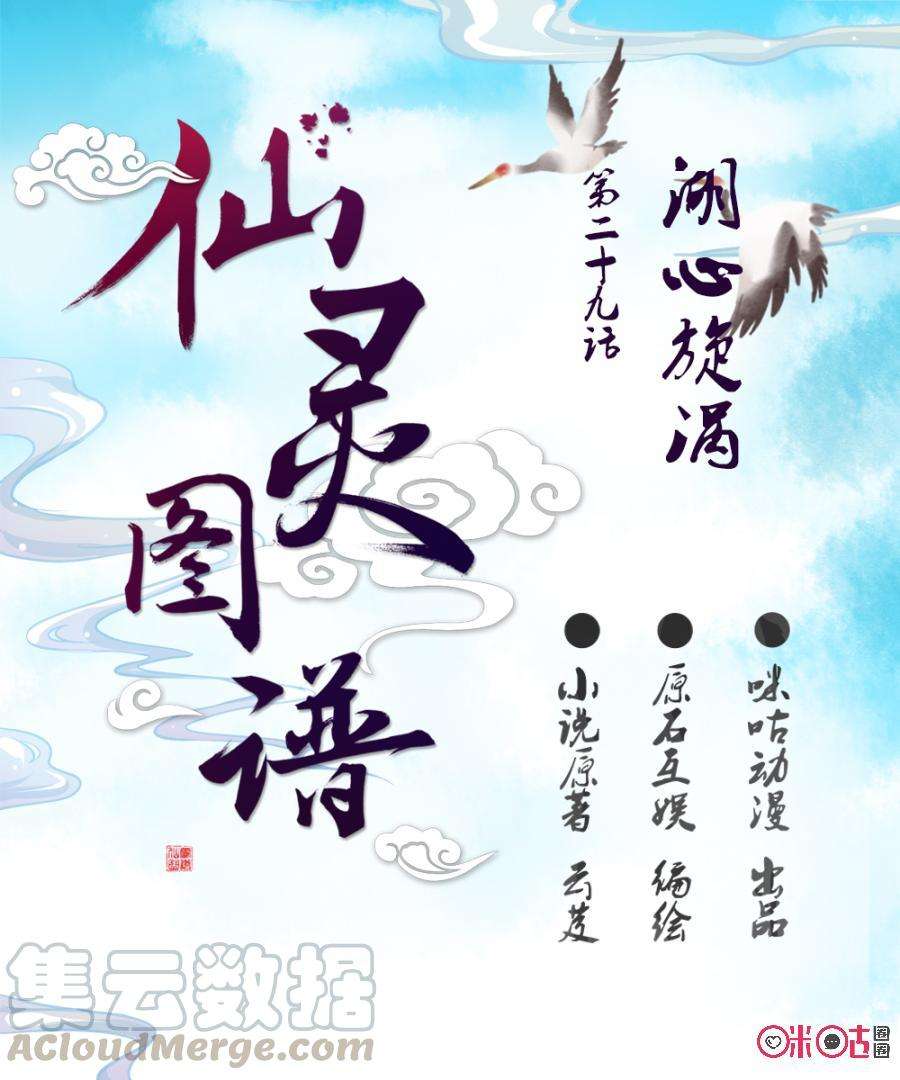 仙灵图谱
第二十九话
湖心旋涡
咪咕动漫 出品
原石互娱 编绘
小说原著 云芨
集云数据
ACloudMerge.com
咪咕圈圈